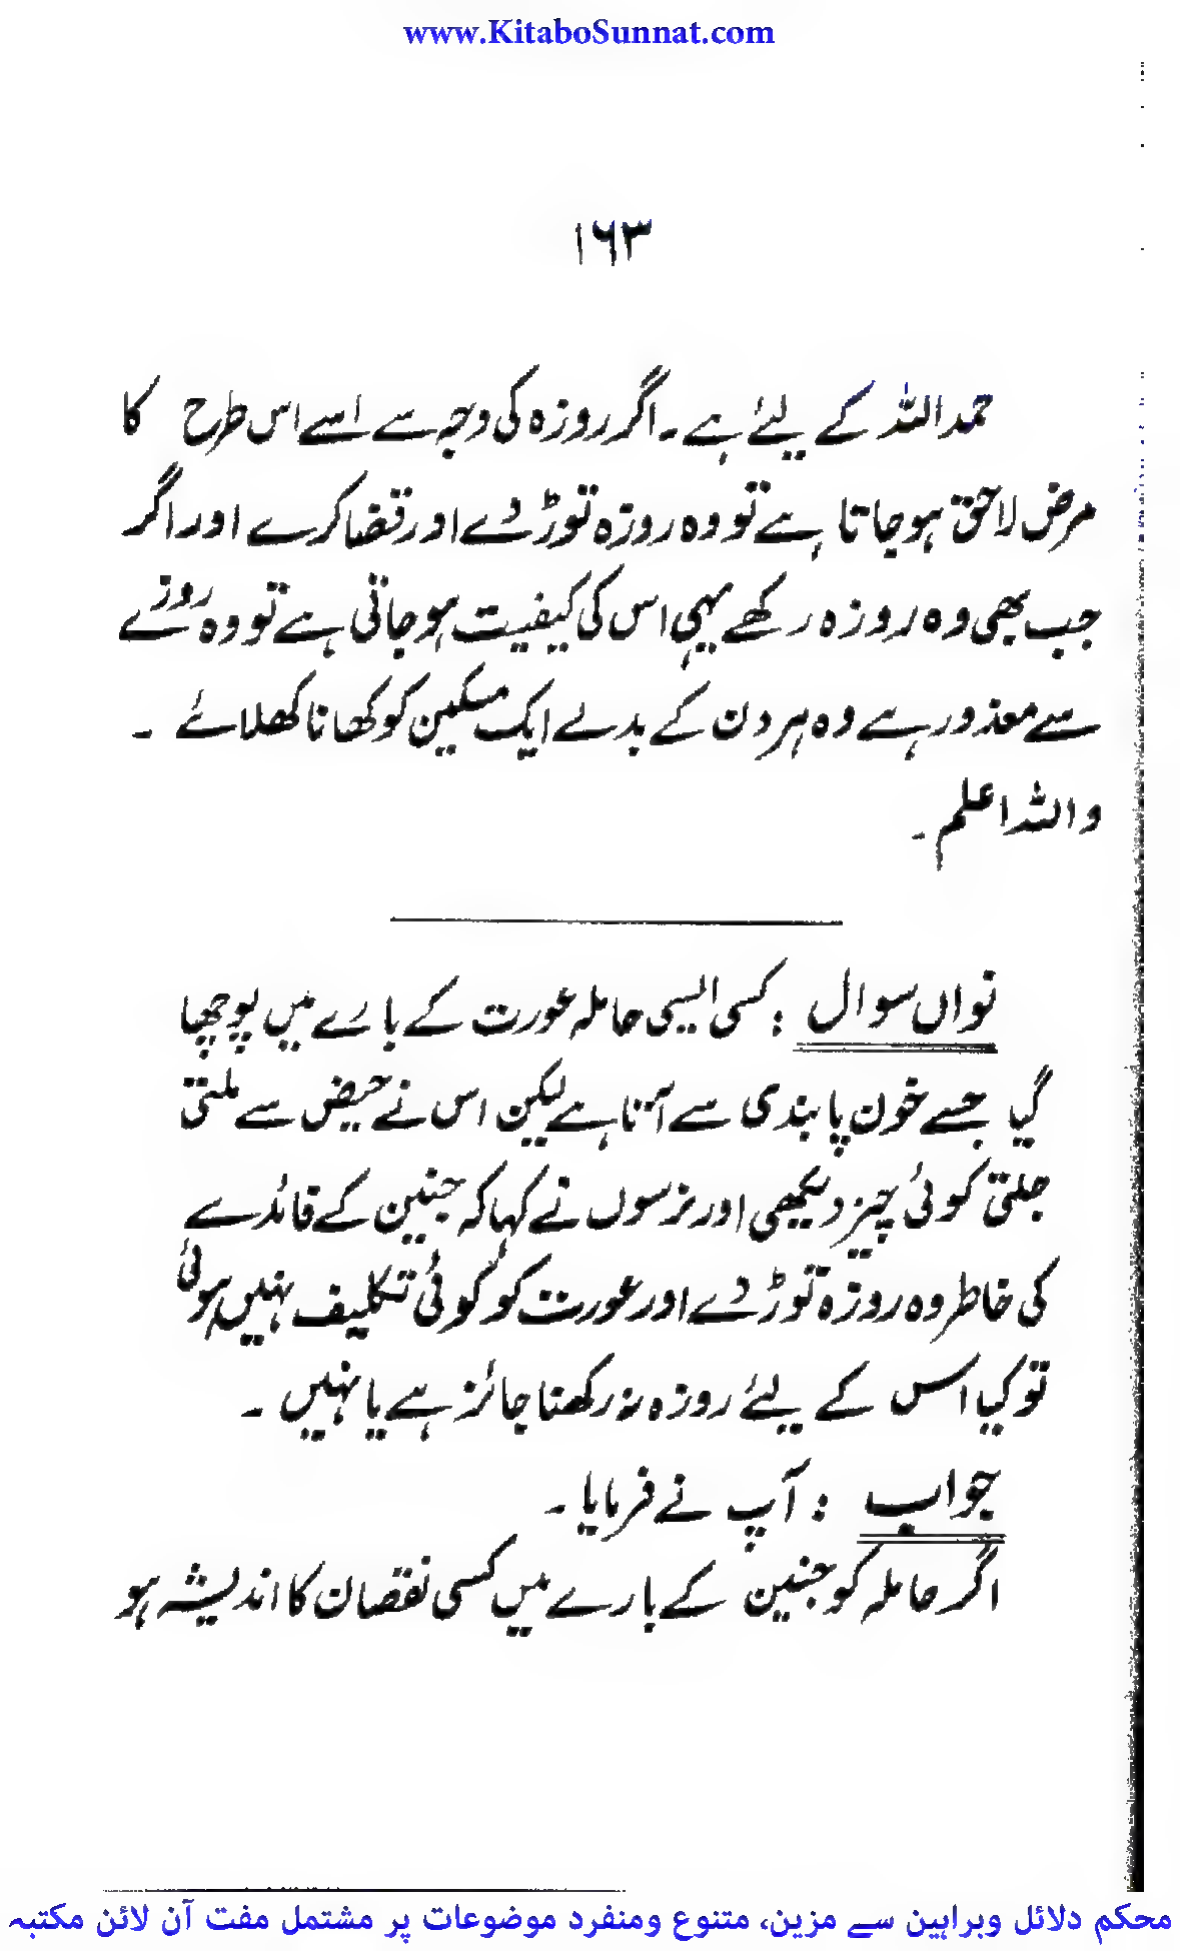 www.KitaboSunnat.com
۱۶۳
حمد اللہ کے لیئے ہے ۔ اگر روزہ کی وجہ سے اسے اس طرح کا
مرض لاحق ہوجاتا ہے تو وہ روزہ توڑ دے اور قضا کرے اور اگر
جب بھی وہ روزہ رکھے یہی اس کی کیفیت ہوجاتی ہے تو وہ روزے
سے معذور ہے وہ ہر دن کے بدلے ایک مسکین کو کھانا کھلائے ۔
واللہ اعلم ۔
نواں سوال : کسی ایسی حاملہ عورت کے بارے میں پوچھا
گیا جسے خون پابندی سے آتا ہے لیکن اس نے حیض سے ملتی
جلتی کوئی چیز دیکھی اور نرسوں نے کہا کہ جنین کے فائدے
کی خاطر وہ روزہ توڑ دے اور عورت کو کوئی تکلیف نہیں ہوئی
تو کیا اس کے لیئے روزہ نہ رکھنا جائز ہے یا نہیں ۔
جواب : آپ نے فرمایا ۔
اگر حاملہ کو جنین کے بارے میں کسی نقصان کا اندیشہ ہو
محکم دلائل وبراہین سے مزین، متنوع ومنفرد موضوعات پر مشتمل مفت آن لائن مکتبہ